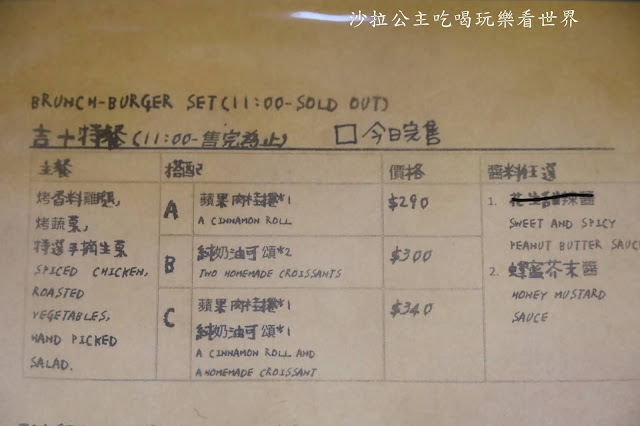 沙拉公主吃喝玩樂看世界
BRUNCH-BURGER SET(11:00-SOLD OUT)
吉十特餐(11:00-售完為止) 今日完售
主餐 搭配 價格 醬料任選
烤香料雞腿,
烤蔬菜,
特選手摘生菜
SPICED CHICKEN,
ROASTED
VEGETABLES,
HAND PICKED
SALAD.
A 蘋果肉桂捲*1 $290
A CINNAMON ROLL
B 純奶油可頌*2 $300
TWO HOMEMADE CROISSANTS
C 蘋果肉桂捲*1 $340
純奶油可頌*1
A CINNAMON ROLL AND
A HOMEMADE CROISSANT
1.
SWEET AND SPICY
PEANUT BUTTER SAUCE
2. 蜂蜜芥末醬
HONEY MUSTARD
SAUCE